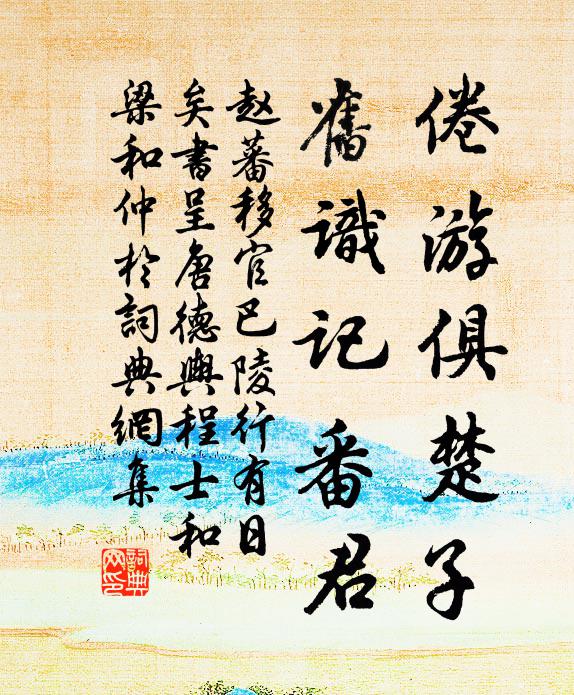 倦游俱楚子
舊識記番君
赵蕃移官巴陵行有日
矣書呈唐德輿程士和
梁和仲於詞典網集